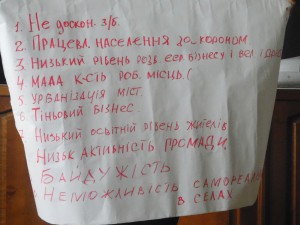 1. Не доскон. з/б.
2. Працевл. населення за кордоном
3 Низький рівень розв. сер бізнесу і вел і дріб
4 Мала к-сть роб. місць.(
5 Урбанізація міст.
6 Тіньовий бізнес
7 Низький освітній рівень жителів
Низьк активність громади
Байдужість
Неможливість самореал
в селах